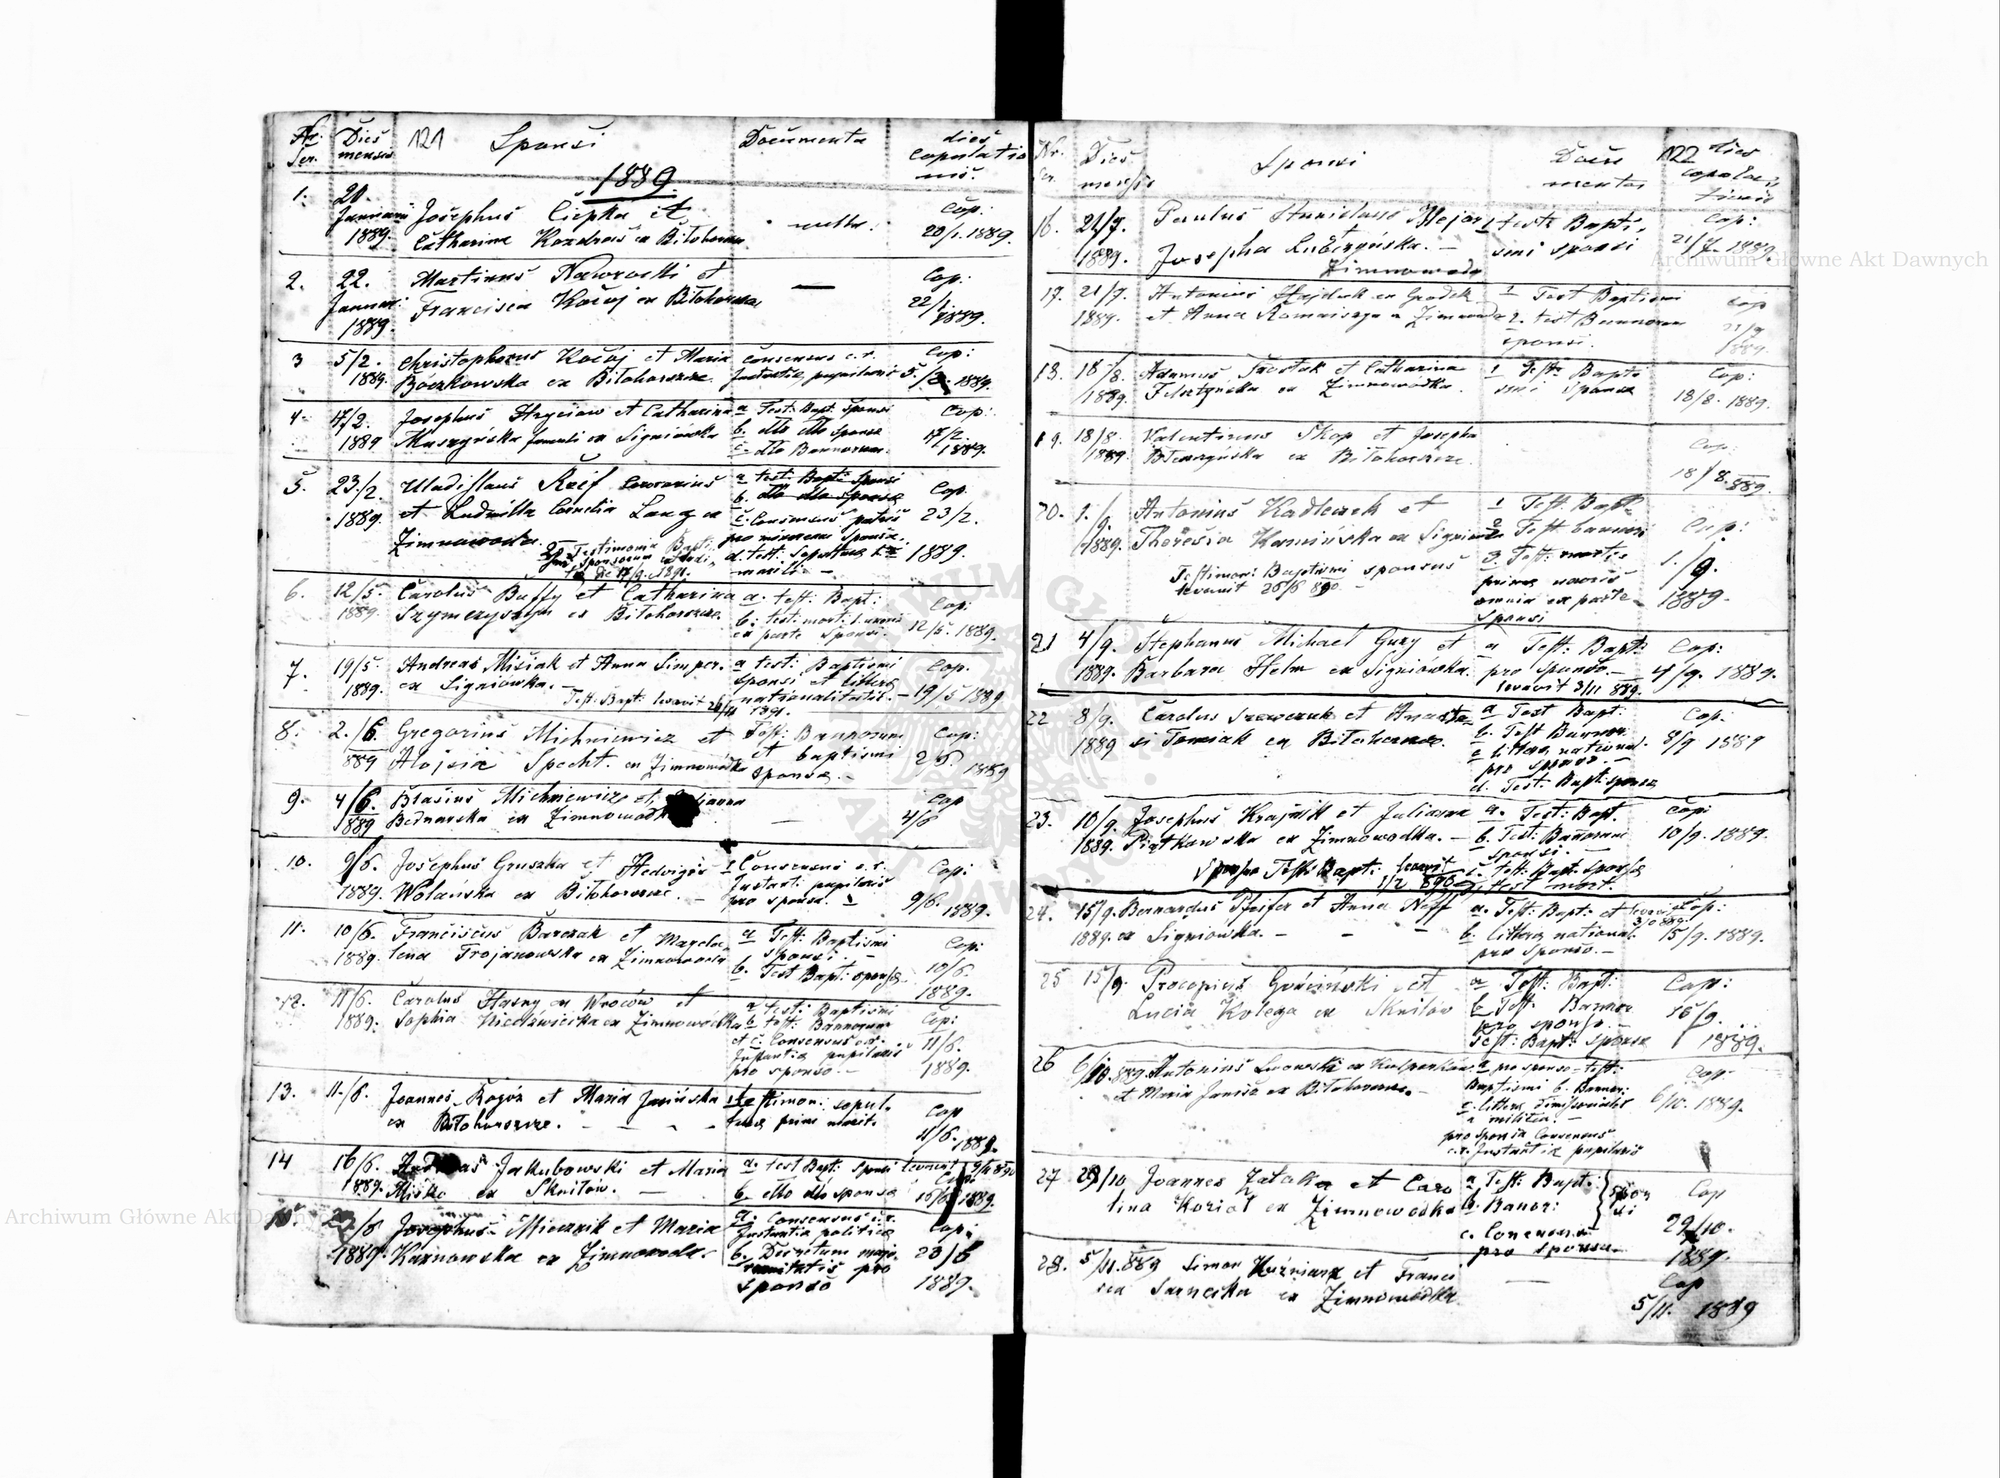 Nr. Ser.
Dies mensis
121
Sponsi
Documenta
dies copulationis
1889.
1.
20. Januarii 1889.
Josephus Ciepka et
Catharina ex Biłohorszcze
nulla.
Cop: 20/1. 1889.
2.
22. Januarii 1889.
Martinus Nawrocki et
Francisca Kočoj ex Biłohorszcze
—
Cop: 22/1. 1889.
3
5/2. 1889.
Christophorus Kočoj et Maria
Bóczkowska ex Biłohorszcze
Consensus c. r.
Instantiæ pupilaris
Cop: 5/2. 1889.
4.
17/2. 1889
Josephus Hryciow et Catharina
Muszyńska famuli ex Signiówka
a Test: Bapt: sponsi
b. dto dto sponsæ
c. dto Bannorum.
Cop: 17/2. 1889.
5.
23/2. 1889.
Uladislaus Reif et Ludmilla Cornelia Lang ex
Zimnawoda.
a test: Bapti: sponsi
b. dto dto sponsæ
c. Consensus patris
pro minorenni sponsa.
d. test: sepulturæ
mariti. —
Testimonia Bapt:
Sponsorum
17/9. 1891.
Cop. 23/2. 1889.
6.
12/5. 1889.
Carolus Buffy et Catharina
ex Biłohorszcze.
a. test: Bapt:
b. test: mort: 1. uxoris
ex parte sponsi.
Cop: 12/5. 1889.
7.
19/5 1889.
Andreas Misiak et Anna Simper.
ex Signiówka. —
a test: Baptismi
sponsi et litteræ
nationalitatis. —
Test: Bapt: levavit 1891.
Cop. 19/5 1889
8.
2./6. 889
Gregorius Michniewicz et
Alojsia Specht. ex Zimnowódka
Test: Bannorum
et baptismi
sponsæ. —
Cop: 2/6 1889
9.
4/6. 889
Blasius Michniewicz et
Bednarska ex Zimnowódka
—
Cop 4/6
10.
9/6. 1889.
Josephus Gruszka et Hedvigis
Wolanska ex Biłohorszcze. —
1 Consensus c. r.
Instanti: pupilaris
pro sponsa. —
Cop: 9/6. 1889.
11.
10/6. 1889.
Franciscus Barczak et Magda-
lena Trojanowska ex Zimnawoda
a Test: Baptismi
sponsi. —
b. Test Bapt: sponsæ
Cop: 10/6. 1889.
12.
11/6. 1889.
Carolus Hasny ex Wroców et
Sophia Niedźwiecka ex Zimnowódka
a test: Baptismi
b test: Bannorum
et c. Consensus c. r.
Instantiæ pupilaris
pro sponso. —
Cop: 11/6. 1889.
13.
11./6.
Joannes Rogóż et Maria Jasińska
ex Biłohorszcze. — — —
testimon: sepul-
turæ primi marit.
Cop 11/6. 1889.
14
16/6. 1889.
Jakubowski et Maria
Miśko ex Sknilów. —
a. test Bapt: sponsi levavit
b. dto dto sponsæ
Cop: 16/6 1889.
15.
23/6 1889.
Josephus Mierznik et Maria
Karnowska ex Zimnawoda.
a. Consensus c. r.
Instantiæ politicæ
b. Decretum majo-
rennitatis pro
sponso
Cop: 23/6 1889.
Nr. Ser.
Dies mensis
Sponsi
Documenta
122
dies copulationis
16.
21/7. 1889.
Paulus Stanislaus et
Josepha Lubczyńska. —
Zimnowoda
1 test: Bapti-
smi sponsi
Cop: 21/7. 1889.
17.
21/7. 1889.
Antonius Hajduk ex Grodek
et Anna ex Zimnawoda
1 Test Baptismi
2. test Bannorum
sponsi.
Cop 21/7 1889.
18.
18/8. 1889.
Adamus Szostak et Catharina
ex Zimnowódka.
1 Test: Bapti-
smi sponsæ
Cop: 18/8. 1889.
19.
18/8. 1889.
Valentinus Skop et Josepha
ex Biłohorszcze.
Cop: 18/8. 889.
20.
1./9. 1889.
Antonius Kadleczek et
Theresia Kamińska ex Signiówka
1 Test: Bapt:
2 Test: bannor:
3. Test: mortis
primæ uxoris
omnia ex parte
sponsi
Testimon: Baptismi sponsus
levavit 26/8 890. —
Cop: 1./9. 1889.
21
4/9. 1889.
Stephanus Michael Gury et
Barbara Helm ex Signiówka.
a Test: Bapt:
pro sponso. —
levavit 3/11 889.
Cop: 4/9. 1889.
22
8/9. 1889
Carolus Szewczuk et Anasta-
si Tomiak ex Biłohorszcze.
a Test Bapt:
b. Test Bannor.
c litteræ national.
pro sponso. —
d. Test: Bapt: sponsæ
Cop: 8/9. 1889
23.
10/9. 1889.
Josephus Krajnik et Julianna
Piątkowska ex Zimnowodka. —
a. Test: Bapt.
b. Test: Bannorum
sponsi. —
c. test: Bapt. sponsæ
test mort:
Sponsa Test: Bapt: levavit
1/2 890
Cop: 10/9. 1889.
24.
15/9. 1889.
Bernardus Pfeifer et Anna Neff
ex Signiowka. — — —
a. Test: Bapt: et
b. litteræ national.
pro sponso. —
Cop: 15/9. 1889.
25
15/9.
Procopius Gościński et
Lucia Kolega ex Sknilów
a Test: Bapt:
b Test: Bannor
pro sponso. —
Test: Bapt: sponsæ
Cop: 15/9. 1889.
26
6/10. 889.
Antonius Lwowski ex Kulparków
et Maria Janisz ex Biłohorszcze. —
a pro sponso — test:
Baptismi b. Bannor:
c. litteræ dimissoriales
a militia. —
pro sponsa Consensus
c. r. Instantiæ pupilaris
Cop: 6/10. 1889.
27
29/10
Joannes Zatoka et Caro-
lina Kozioł ex Zimnowodka
a Test: Bapt:
b. Banor:
sponsi
c. Consensus
pro sponsa
Cop 29/10. 1889.
28.
5/11. 889
Simon Kuźniarz et Franci-
sca Sarnecka ex Zimnowodka
—
Cop 5/11. 1889
Archiwum Główne Akt Dawnych
Archiwum Główne Akt Dawnych
ARCHIWUM GŁÓWNE AKT DAWNYCH